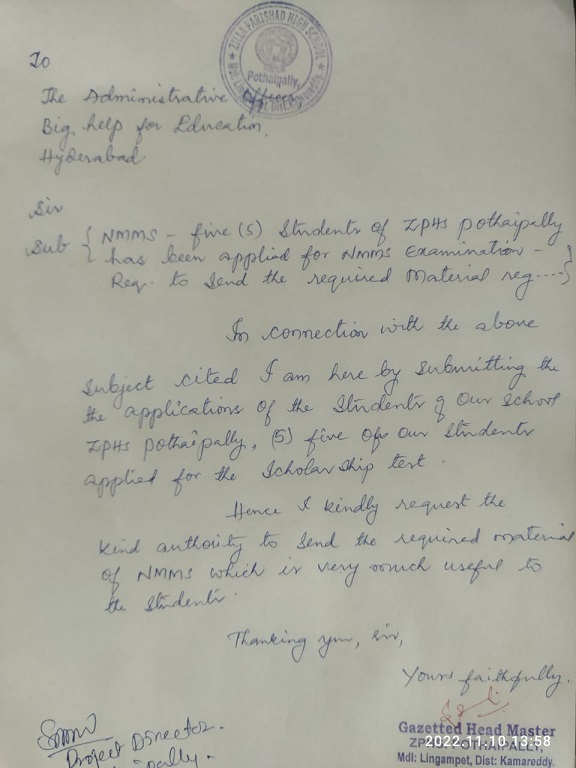 ZILLA PARISHAD HIGH SCHOOL
Pothaipally,
Mdl: Lingampet, Dist: Kamareddy.
To
The Administrative officer
Big help for Education,
Hyderabad
Sir
Sub { NMMS - five (5) Students of ZPHS pothaipally
has been applied for NMMS Examination -
Req. to Send the required Material reg....}
In connection with the above
Subject cited I am here by submitting the
the applications of the Students of Our School
ZPHS pothaipally, (5) five Of Our Students
applied for the Scholar Ship test.
Hence I kindly request the
kind authority to Send the required material
of NMMS which is very much useful to
the Students.
Thanking you, sir,
Yours faithfully.
Gazetted Head Master
ZPHS POTHAIPALLY,
Mdl: Lingampet, Dist: Kamareddy.
2022.11.10 13:58
Project Director.